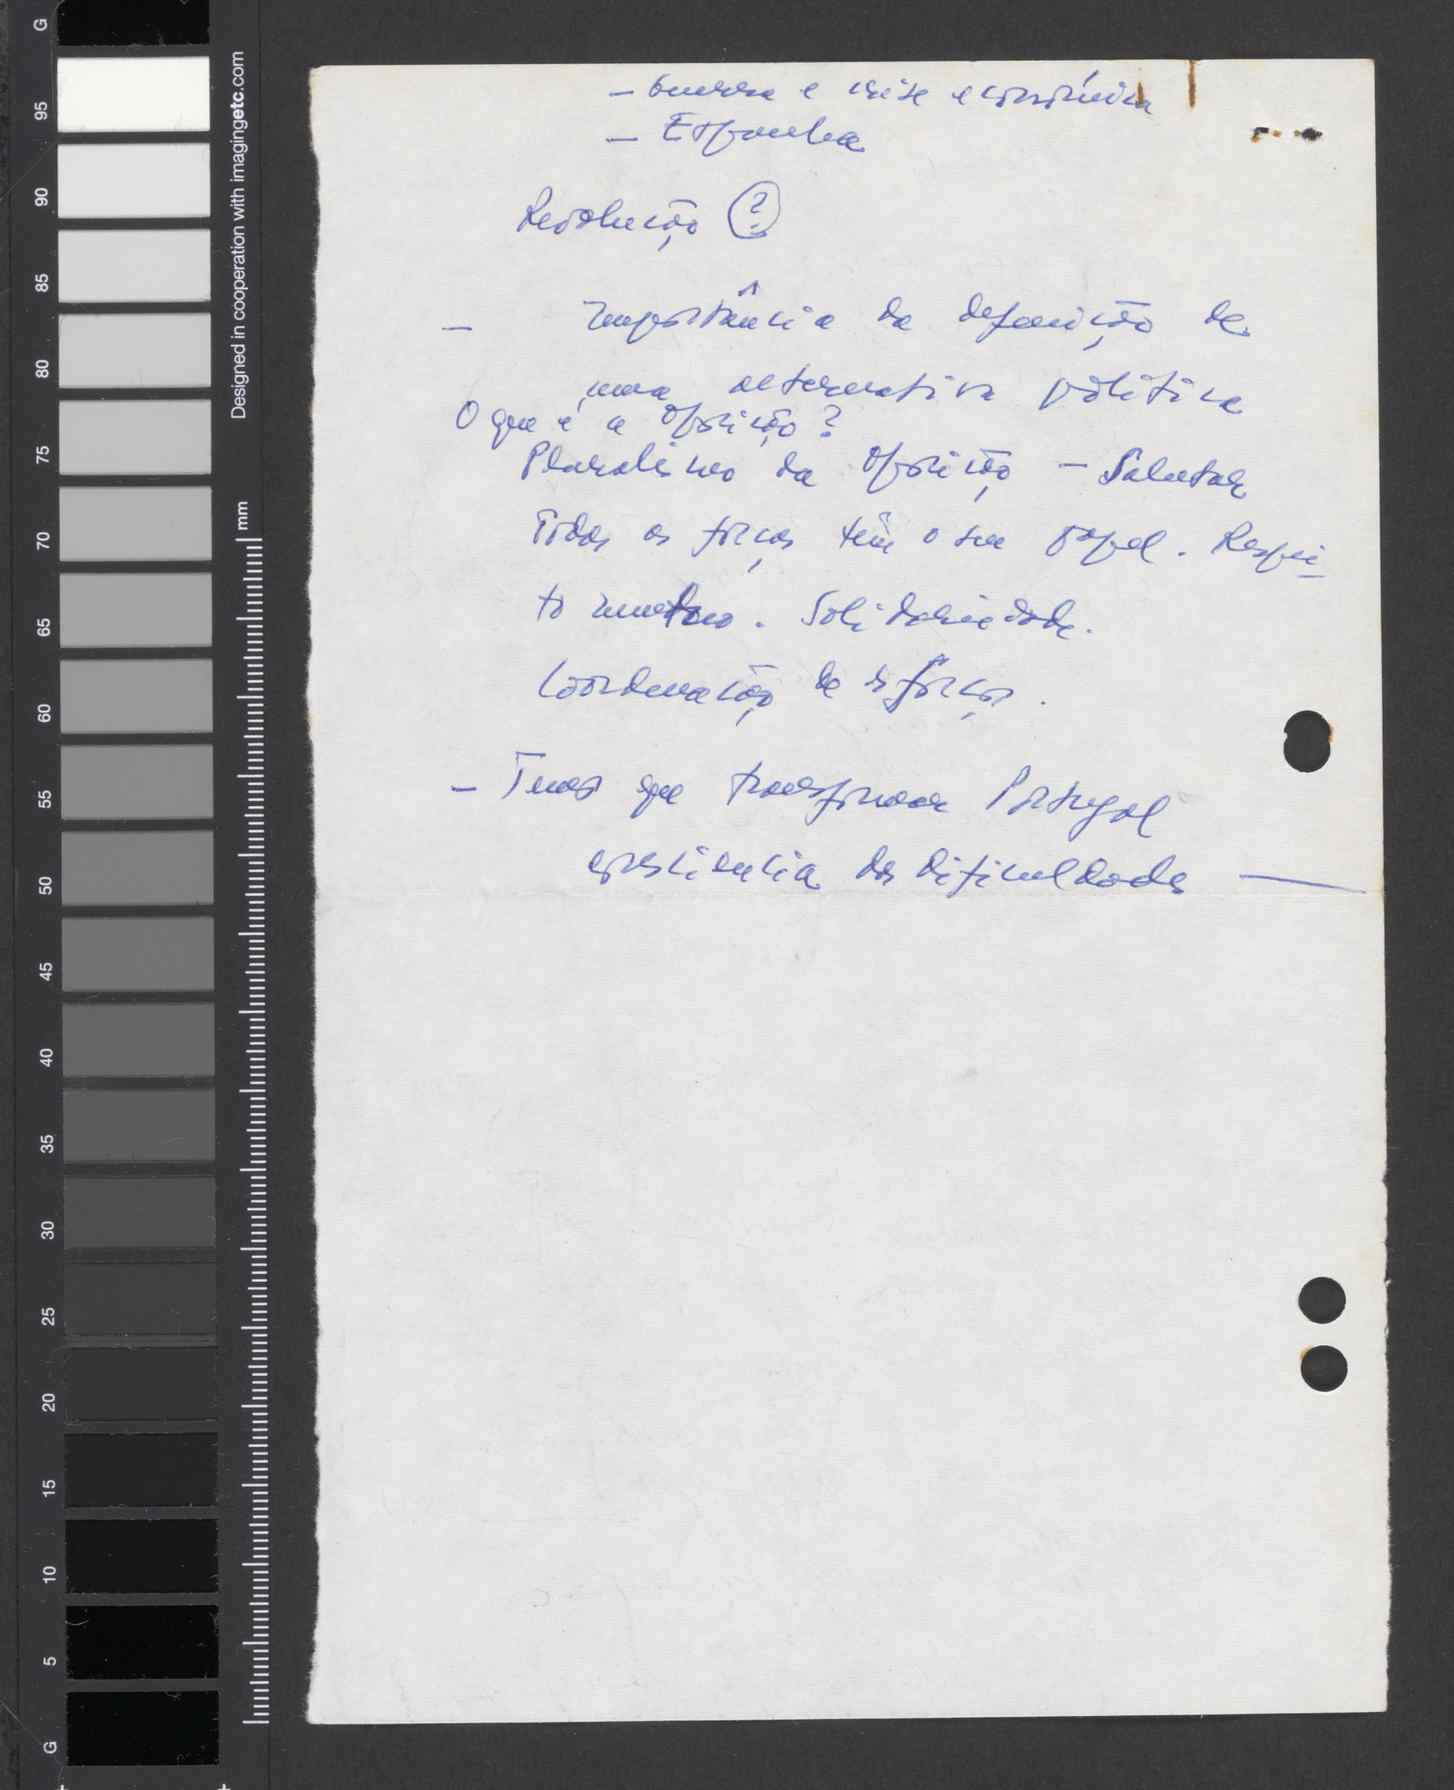 G
95
90
85
80
75
70
65
60
55
50
45
40
35
30
25
20
15
10
5
G
Designed in cooperation with imagingetc.com
mm
– Guerra e crise económica
– Espanha
Revolução ?
– Importância da definição de
uma alternativa política
O que é a oposição?
Pluralismo da oposição – Salutar
Todas as forças têm o seu papel. Respei-
to mutuo. Solidariedade.
Coordenação de esforços.
– Temos que transformar Portugal
consciencia das dificuldades —